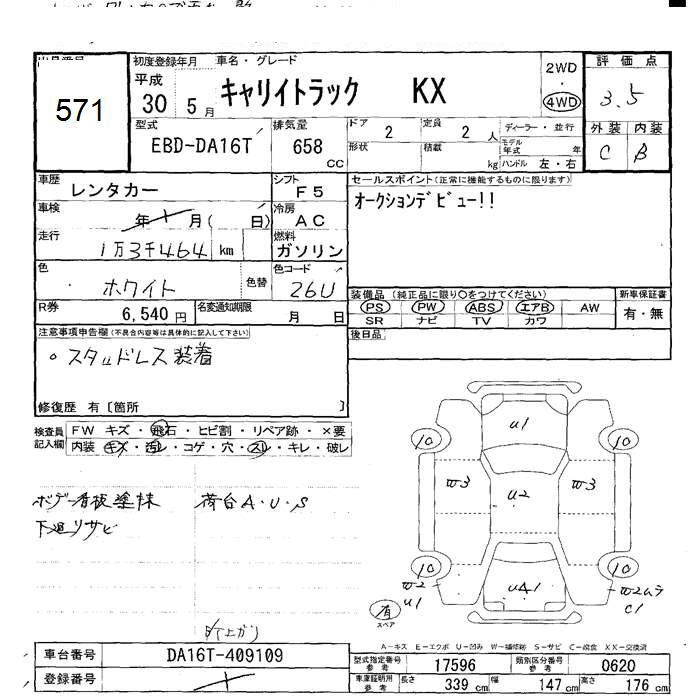 571
初度登録年月 車名・グレード
平成
30 5月 キャリイトラック KX
2WD
・
4WD
評価点
3.5
外装 内装
C B
型式
EBD-DA16T
排気量
658
CC
ドア 2
定員 2 人
ディーラー・並行
形状
積載 kg
モデル年式 年
ハンドル 左・右
車歴
レンタカー
シフト
F5
車検
年 月( 日)
冷房
AC
走行
1万3千464 km
燃料
ガソリン
色
ホワイト
色替
色コード
26U
R券
6,540円
名変通知期限
月 日
セールスポイント(正常に機能するものに限ります)
オークションデビュー!!
装備品(純正品に限り○をつけてください)
新車保証書
PS PW ABS エアB AW
有・無
SR ナビ TV カワ
後日品
注意事項申告欄(不具合内容等は具体的に記入して下さい)
○ スタッドレス装着
修復歴 有〔箇所 〕
検査員
記入欄
FW キズ・飛石・ヒビ割・リペア跡・×要
内装 キズ・汚レ・コゲ・穴・スレ・キレ・破レ
ボデー看板塗抹 荷台A・U・S
下廻りサビ
U1
10 10
W3 U2 W3
10 10
W2
U1
U41
W2ムラ
C1
有
スペア
A-キズ E-エクボ U-凹み W-補修跡 S-サビ C-腐食 XX-交換済
車台番号
DA16T-409109
登録番号
型式指定番号
参考
17596
類別区分番号
参考
0620
車庫証明用
参考
長さ 339 cm
幅 147 cm
高さ 176 cm